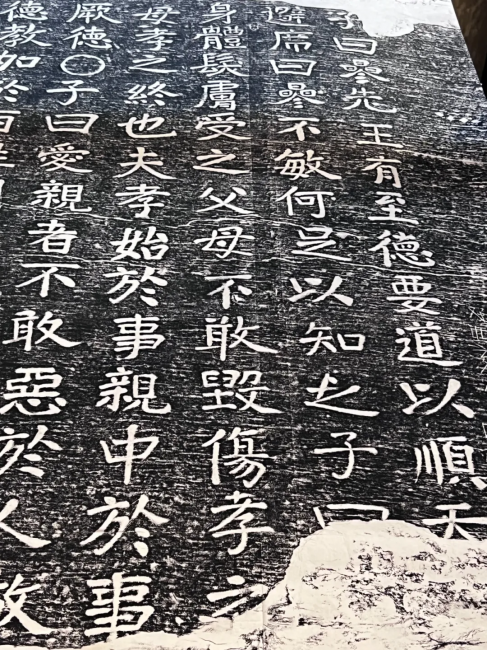 子曰參先王有至德要道以順天
避席曰參不敏何足以知之子曰
身體髮膚受之父母不敢毀傷孝之
母孝之終也夫孝始於事親中於事
厥德〇子曰愛親者不敢惡於人
德教加於百